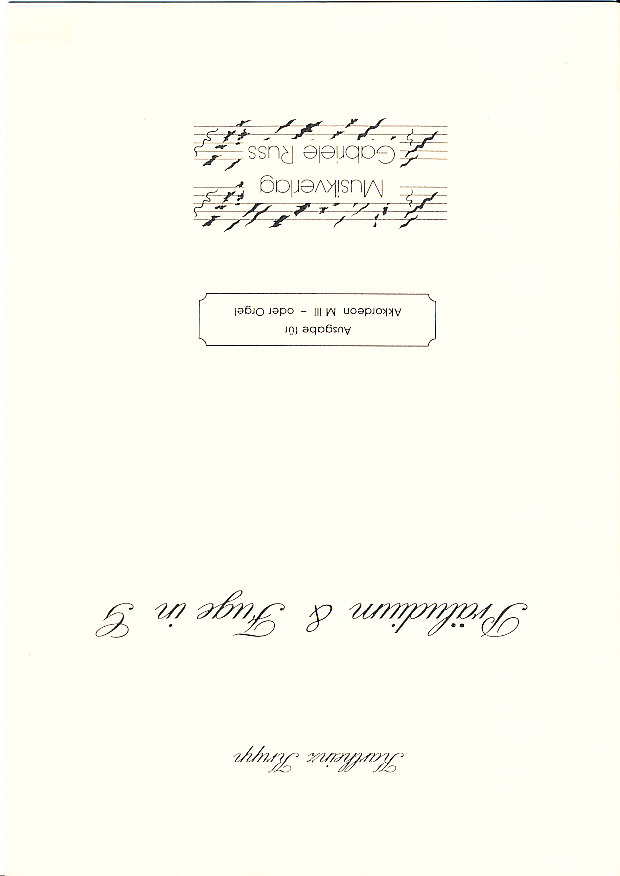 Karlheinz Krupp
Präludium & Fuge in G
Ausgabe für
Akkordeon M III - oder Orgel
Musikverlag
Gabriele Russ